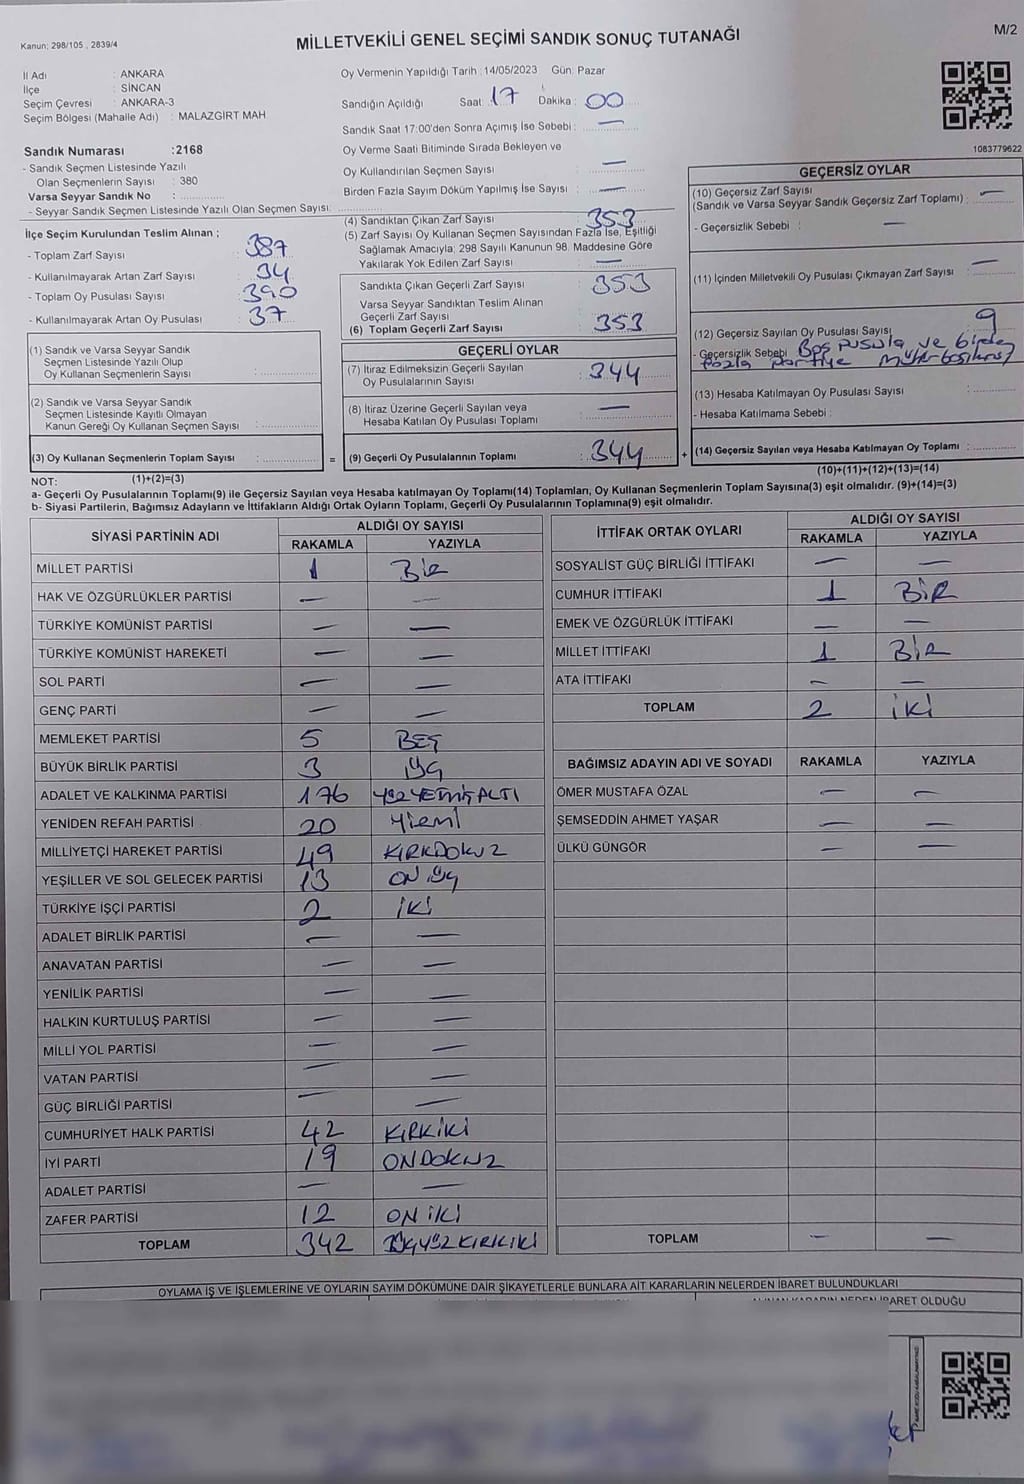 Kanun; 298/105 , 2839/4
MİLLETVEKİLİ GENEL SEÇİMİ SANDIK SONUÇ TUTANAĞI
M/2
İl Adı : ANKARA
İlçe : SİNCAN
Seçim Çevresi : ANKARA-3
Seçim Bölgesi (Mahalle Adı) : MALAZGİRT MAH
Oy Vermenin Yapıldığı Tarih :14/05/2023 Gün: Pazar
Sandığın Açıldığı Saat: 17 Dakika: 00
Sandık Saat 17:00'den Sonra Açımış İse Sebebi : —
Oy Verme Saati Bitiminde Sırada Bekleyen ve
Oy Kullandırılan Seçmen Sayısı : —
Birden Fazla Sayım Döküm Yapılmış İse Sayısı : —
Sandık Numarası :2168
- Sandık Seçmen Listesinde Yazılı
Olan Seçmenlerin Sayısı : 380
Varsa Seyyar Sandık No :
- Seyyar Sandık Seçmen Listesinde Yazılı Olan Seçmen Sayısı:
1083779622
İlçe Seçim Kurulundan Teslim Alınan ;
- Toplam Zarf Sayısı : 387
- Kullanılmayarak Artan Zarf Sayısı : 34
- Toplam Oy Pusulası Sayısı : 390
- Kullanılmayarak Artan Oy Pusulası : 37
(1) Sandık ve Varsa Seyyar Sandık
Seçmen Listesinde Yazılı Olup
Oy Kullanan Seçmenlerin Sayısı :
(2) Sandık ve Varsa Seyyar Sandık
Seçmen Listesinde Kayıtlı Olmayan
Kanun Gereği Oy Kullanan Seçmen Sayısı :
(3) Oy Kullanan Seçmenlerin Toplam Sayısı : =
(4) Sandıktan Çıkan Zarf Sayısı : 353
(5) Zarf Sayısı Oy Kullanan Seçmen Sayısından Fazla İse, Eşitliği
Sağlamak Amacıyla; 298 Sayılı Kanunun 98. Maddesine Göre
Yakılarak Yok Edilen Zarf Sayısı : —
Sandıkta Çıkan Geçerli Zarf Sayısı : 353
Varsa Seyyar Sandıktan Teslim Alınan
Geçerli Zarf Sayısı :
(6) Toplam Geçerli Zarf Sayısı : 353
GEÇERLİ OYLAR
(7) İtiraz Edilmeksizin Geçerli Sayılan
Oy Pusulalarının Sayısı : 344
(8) İtiraz Üzerine Geçerli Sayılan veya
Hesaba Katılan Oy Pusulası Toplamı : —
(9) Geçerli Oy Pusulalarının Toplamı : 344 +
GEÇERSİZ OYLAR
(10) Geçersiz Zarf Sayısı
(Sandık ve Varsa Seyyar Sandık Geçersiz Zarf Toplamı) : —
- Geçersizlik Sebebi : —
(11) İçinden Milletvekili Oy Pusulası Çıkmayan Zarf Sayısı : —
(12) Geçersiz Sayılan Oy Pusulası Sayısı : 9
- Geçersizlik Sebebi Boş pusula ve birden
fazla partiye mühür
(13) Hesaba Katılmayan Oy Pusulası Sayısı :
- Hesaba Katılmama Sebebi :
(14) Geçersiz Sayılan veya Hesaba Katılmayan Oy Toplamı :
NOT: (1)+(2)=(3) (10)+(11)+(12)+(13)=(14)
a- Geçerli Oy Pusulalarının Toplamı(9) ile Geçersiz Sayılan veya Hesaba katılmayan Oy Toplamı(14) Toplamları, Oy Kullanan Seçmenlerin Toplam Sayısına(3) eşit olmalıdır. (9)+(14)=(3)
b- Siyasi Partilerin, Bağımsız Adayların ve İttifakların Aldığı Ortak Oyların Toplamı, Geçerli Oy Pusulalarının Toplamına(9) eşit olmalıdır.
SİYASİ PARTİNİN ADI ALDIĞI OY SAYISI
RAKAMLA YAZIYLA
MİLLET PARTİSİ 1 BİR
HAK VE ÖZGÜRLÜKLER PARTİSİ — —
TÜRKİYE KOMÜNİST PARTİSİ — —
TÜRKİYE KOMÜNİST HAREKETİ — —
SOL PARTİ — —
GENÇ PARTİ — —
MEMLEKET PARTİSİ 5 BEŞ
BÜYÜK BİRLİK PARTİSİ 3 üç
ADALET VE KALKINMA PARTİSİ 176 YÜZYETMİŞALTI
YENİDEN REFAH PARTİSİ 20 Yirmi
MİLLİYETÇİ HAREKET PARTİSİ 49 KIRKDOKUZ
YEŞİLLER VE SOL GELECEK PARTİSİ 13 ON üç
TÜRKİYE İŞÇİ PARTİSİ 2 İKİ
ADALET BİRLİK PARTİSİ — —
ANAVATAN PARTİSİ — —
YENİLİK PARTİSİ — —
HALKIN KURTULUŞ PARTİSİ — —
MİLLİ YOL PARTİSİ — —
VATAN PARTİSİ — —
GÜÇ BİRLİĞİ PARTİSİ — —
CUMHURİYET HALK PARTİSİ 42 KIRKİKİ
İYİ PARTİ 19 ONDOKUZ
ADALET PARTİSİ — —
ZAFER PARTİSİ 12 ONİKİ
TOPLAM 342 ÜÇYÜZKIRKİKİ
İTTİFAK ORTAK OYLARI ALDIĞI OY SAYISI
RAKAMLA YAZIYLA
SOSYALİST GÜÇ BİRLİĞİ İTTİFAKI — —
CUMHUR İTTİFAKI 1 BİR
EMEK VE ÖZGÜRLÜK İTTİFAKI — —
MİLLET İTTİFAKI 1 BİR
ATA İTTİFAKI — —
TOPLAM 2 İKİ
BAĞIMSIZ ADAYIN ADI VE SOYADI RAKAMLA YAZIYLA
ÖMER MUSTAFA ÖZAL — —
ŞEMSEDDİN AHMET YAŞAR — —
ÜLKÜ GÜNGÖR — —
TOPLAM — —
OYLAMA İŞ VE İŞLEMLERİNE VE OYLARIN SAYIM DÖKÜMÜNE DAİR ŞİKAYETLERLE BUNLARA AİT KARARLARIN NELERDEN İBARET BULUNDUKLARI
ALINAN KARARIN NEDEN İBARET OLDUĞU